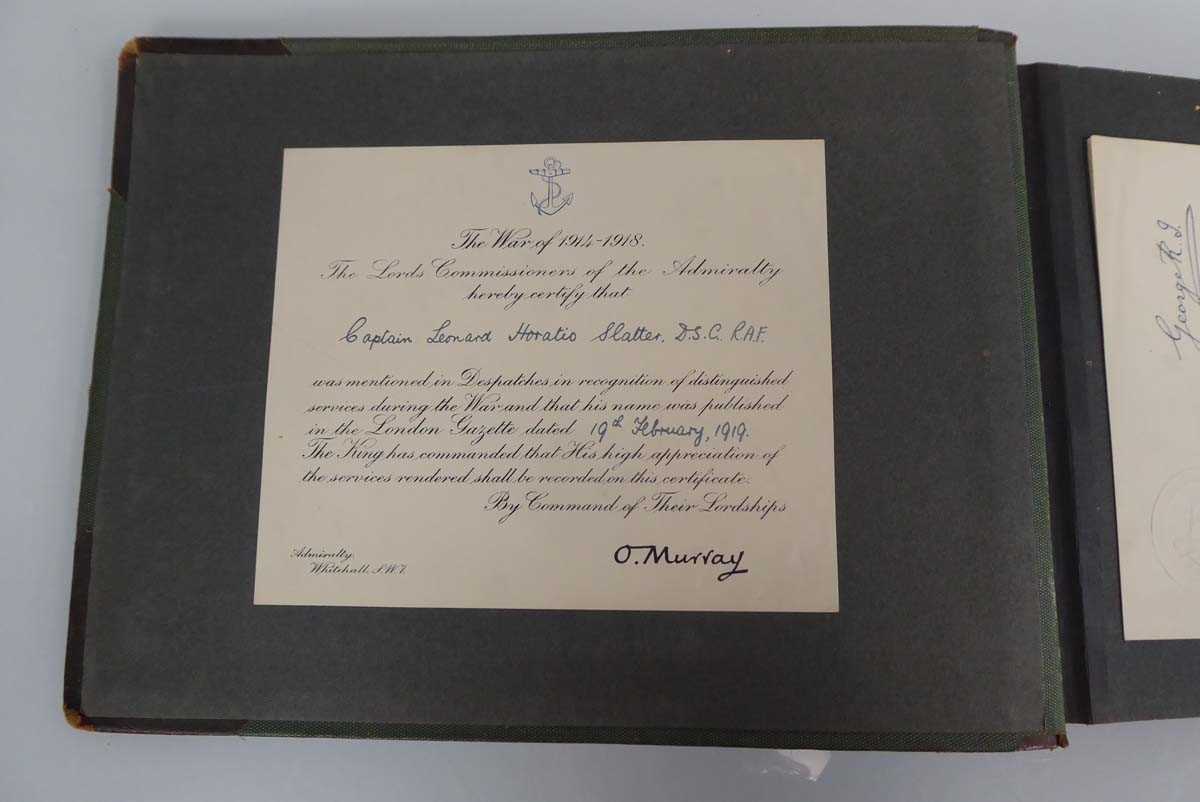 The War of 1914-1918.
The Lords Commissioners of the Admiralty
hereby certify that
Captain Leonard Horatio Slatter, D.S.C. R.A.F.
was mentioned in Despatches in recognition of distinguished
services during the War and that his name was published
in the London Gazette dated 19th February, 1919.
The King has commanded that His high appreciation of
the services rendered shall be recorded on this certificate.
By Command of Their Lordships
Admiralty,
Whitehall, S.W.1.
O. Murray
George R.I.